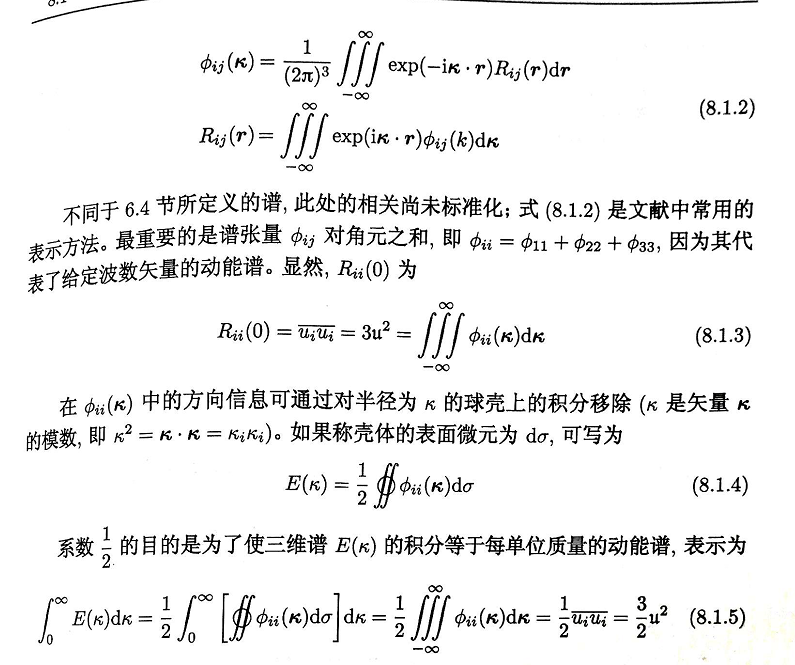 8.1
ϕ_{ij}(κ) = \frac{1}{(2π)^3} ∭_{−∞}^{∞} exp(−iκ · r)R_{ij}(r)dr
(8.1.2)
R_{ij}(r) = ∭_{−∞}^{∞} exp(iκ · r)ϕ_{ij}(k)dκ
不同于 6.4 节所定义的谱, 此处的相关尚未标准化; 式 (8.1.2) 是文献中常用的
表示方法。最重要的是谱张量 ϕ_{ij} 对角元之和, 即 ϕ_{ii} = ϕ_{11} + ϕ_{22} + ϕ_{33}, 因为其代
表了给定波数矢量的动能谱。显然, R_{ii}(0) 为
R_{ii}(0) = \overline{u_i u_i} = 3u^2 = ∭_{−∞}^{∞} ϕ_{ii}(κ)dκ (8.1.3)
在 ϕ_{ii}(κ) 中的方向信息可通过对半径为 κ 的球壳上的积分移除 (κ 是矢量 κ
的模数, 即 κ^2 = κ · κ = κ_iκ_i)。如果称壳体的表面微元为 dσ, 可写为
E(κ) = \frac{1}{2} ∯ ϕ_{ii}(κ)dσ (8.1.4)
系数 \frac{1}{2} 的目的是为了使三维谱 E(κ) 的积分等于每单位质量的动能谱, 表示为
∫_0^∞ E(κ)dκ = \frac{1}{2} ∫_0^∞ [∯ ϕ_{ii}(κ)dσ] dκ = \frac{1}{2} ∭_{−∞}^{∞} ϕ_{ii}(κ)dκ = \frac{1}{2} \overline{u_i u_i} = \frac{3}{2} u^2 (8.1.5)